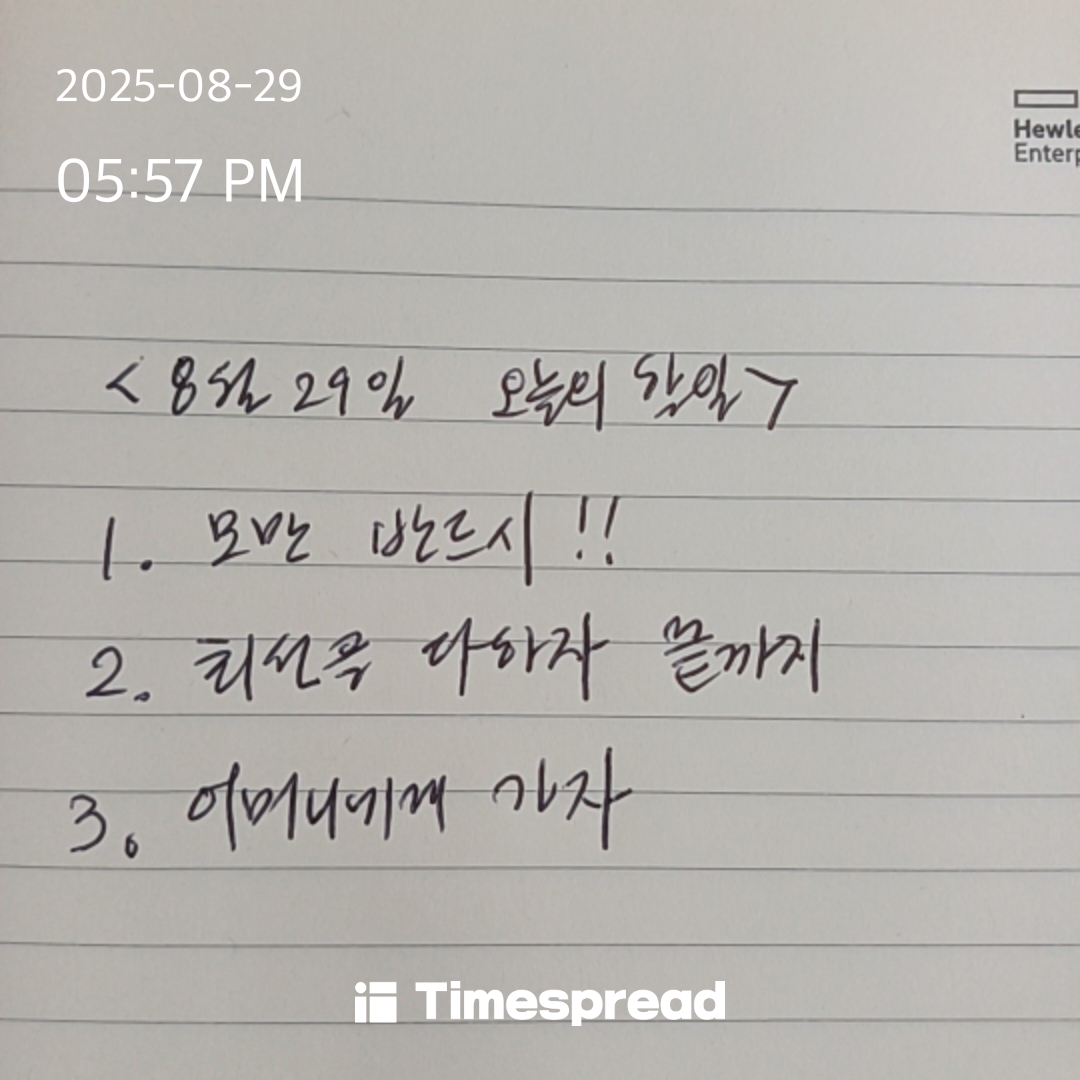 2025-08-29
05:57 PM
Hewle
Enterp
< 8월 29일 오늘의 할일 >
1. 모만 반드시!!
2. 최선을 다하자 끝까지
3. 어머니에게 가자
Timespread